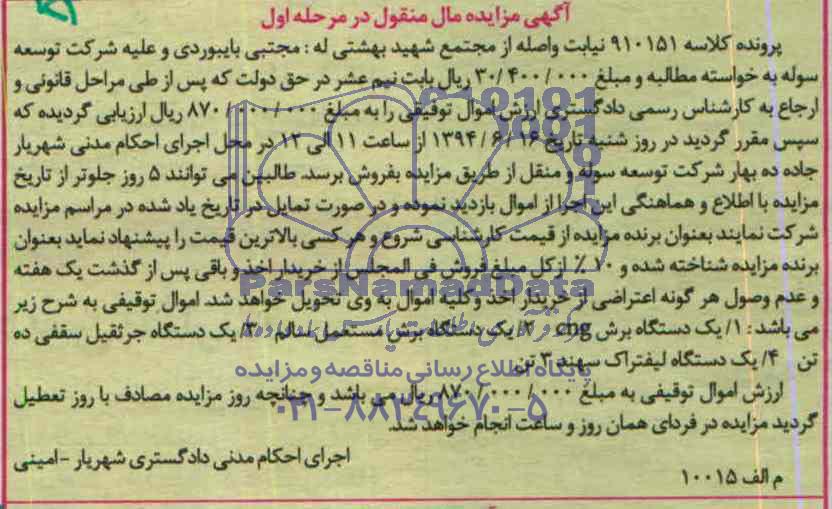 آگهی مزایده مال منقول در مرحله اول
پرونده کلاسه ۹۱۰۱۵۱ نیابت واصله از مجتمع شهید بهشتی له : مجتبی بایبوردی و علیه شرکت توسعه
سوله به خواسته مطالبه و مبلغ ۳۰/۴۰۰/۰۰۰ ریال بابت نیم عشر در حق دولت که پس از طی مراحل قانونی و
ارجاع به کارشناس رسمی دادگستری ارزش اموال توقیفی را به مبلغ ۸۷۰/۰۰۰/۰۰۰ ریال ارزیابی گردیده که
سپس مقرر گردید در روز شنبه تاریخ ۱۳۹۴/۶/۱۶ از ساعت ۱۱ الی ۱۲ در محل اجرای احکام مدنی شهریار
جاده ده بهار شرکت توسعه سوله و منقل از طریق مزایده بفروش برسد. طالبین می توانند ۵ روز جلوتر از تاریخ
مزایده با اطلاع و هماهنگی این اجرا از اموال بازدید نموده و در صورت تمایل در تاریخ یاد شده در مراسم مزایده
شرکت نمایند بعنوان برنده مزایده از قیمت کارشناسی شروع و هر کسی بالاترین قیمت را پیشنهاد نماید بعنوان
برنده مزایده شناخته شده و ۱۰ ٪ از کل مبلغ فروش فی المجلس از خریدار اخذ و باقی پس از گذشت یک هفته
و عدم وصول هر گونه اعتراضی از خریدار اخذ وکلیه اموال به وی تحویل خواهد شد. اموال توقیفی به شرح زیر
می باشد : ۱/ یک دستگاه برش cng ۲/ یک دستگاه برش مستعمل سالم ۳/ یک دستگاه جرثقیل سقفی ده
تن ۴/ یک دستگاه لیفتراک سهند ۳ تن
ارزش اموال توقیفی به مبلغ ۸۷۰/۰۰۰/۰۰۰ ریال می باشد و چنانچه روز مزایده مصادف با روز تعطیل
گردید مزایده در فردای همان روز و ساعت انجام خواهد شد.
اجرای احکام مدنی دادگستری شهریار - امینی
م الف ۱۰۰۱۵
ParsNamadData
پایگاه اطلاع رسانی مناقصه و مزایده
۰۲۱-۸۸۳۴۹۶۷۰-۵